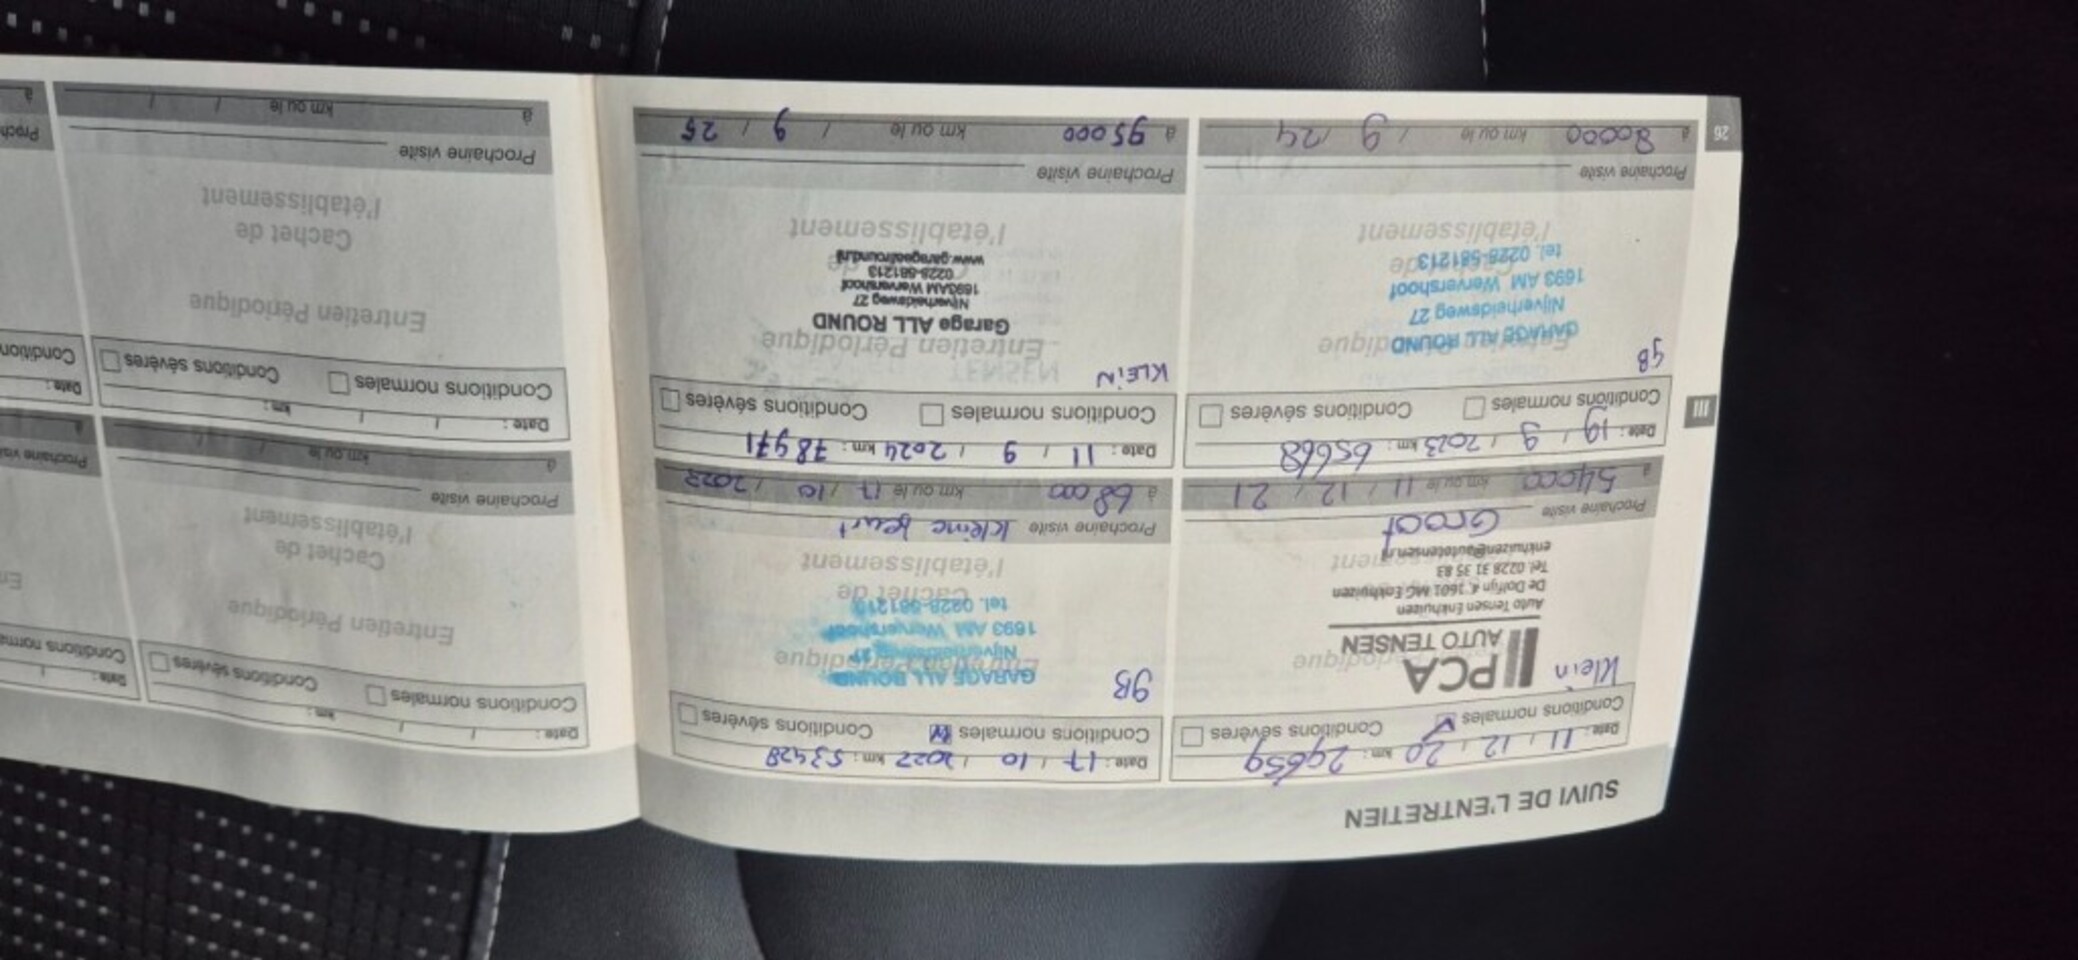 SUIVI DE L'ENTRETIEN
Date : 11 / 12 / 20 km : 29659
Conditions normales Conditions sévères
Klein
PCA
AUTO TENSEN
Auto Tensen Enkhuizen
De Dolfijn 4, 1601 MG Enkhuizen
Tel. 0228 31 35 83
enkhuizen@autotensen.nl
Groot
Prochaine visite
à 54000 km ou le 11 / 12 / 21
Date : 17 / 10 / 2022 km : 53428
Conditions normales Conditions sévères
gB
Entretien Périodique
GARAGE ALL ROUND
Nijverheidsweg 27
1693 AM Wervershoof
tel. 0228-581213
Cachet de
l'établissement
Prochaine visite kleine beurt
à 68000 km ou le 17 / 10 / 2023
Date : 19 / 9 / 2023 km : 65668
Conditions normales Conditions sévères
gB
Entretien Périodique
GARAGE ALL ROUND
Nijverheidsweg 27
1693 AM Wervershoof
tel. 0228-581213
Cachet de
l'établissement
Prochaine visite
à 80000 km ou le / 9 / 24
Date : 11 / 9 / 2024 km : 78971
Conditions normales Conditions sévères
KLEIN
Entretien Périodique
Garage ALL ROUND
Nijverheidsweg 27
1693AM Wervershoof
0228-581213
www.garageallround.nl
l'établissement
Prochaine visite
à 95000 km ou le / 9 / 25
III
26
Date : / / km :
Conditions normales Conditions sévères
Entretien Périodique
Cachet de
l'établissement
Prochaine visite
à km ou le / /
Date : / / km :
Conditions normales Conditions sévères
Entretien Périodique
Cachet de
l'établissement
Prochaine visite
à km ou le / /
Date : /
Conditions
Prochaine
à
Date :
Condition
à